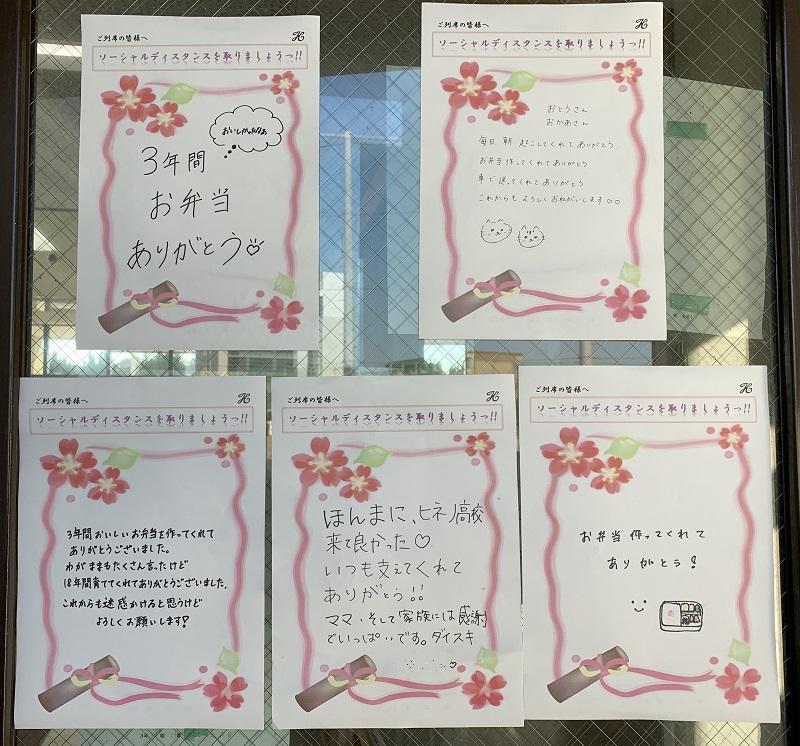 ご列席の皆様へ
H
ソーシャルディスタンスを取りましょうっ!!
おいしかったなぁ
3年間
お弁当
ありがとう
ご列席の皆様へ
H
ソーシャルディスタンスを取りましょうっ!!
おとうさん
おかあさん
毎日 朝 起こしてくれてありがとう
お弁当作ってくれてありがとう
車で送ってくれてありがとう
これからもよろしくおねがいします♡♡
ご列席の皆様へ
H
ソーシャルディスタンスを取りましょうっ!!
3年間おいしいお弁当を作ってくれて
ありがとうございました。
わがままもたくさん言ったけど
18年間育ててくれてありがとうございました。
これからも迷惑かけると思うけど
よろしくお願いします!
ご列席の皆様へ
H
ソーシャルディスタンスを取りましょうっ!!
ほんまに、ヒネ高校
来て良かった♡
いつも支えてくれて
ありがとう!!
ママ・そして家族には感謝
でいっぱいです。ダイスキ
ご列席の皆様へ
H
ソーシャルディスタンスを取りましょうっ!!
お弁当作ってくれて
ありがとう!